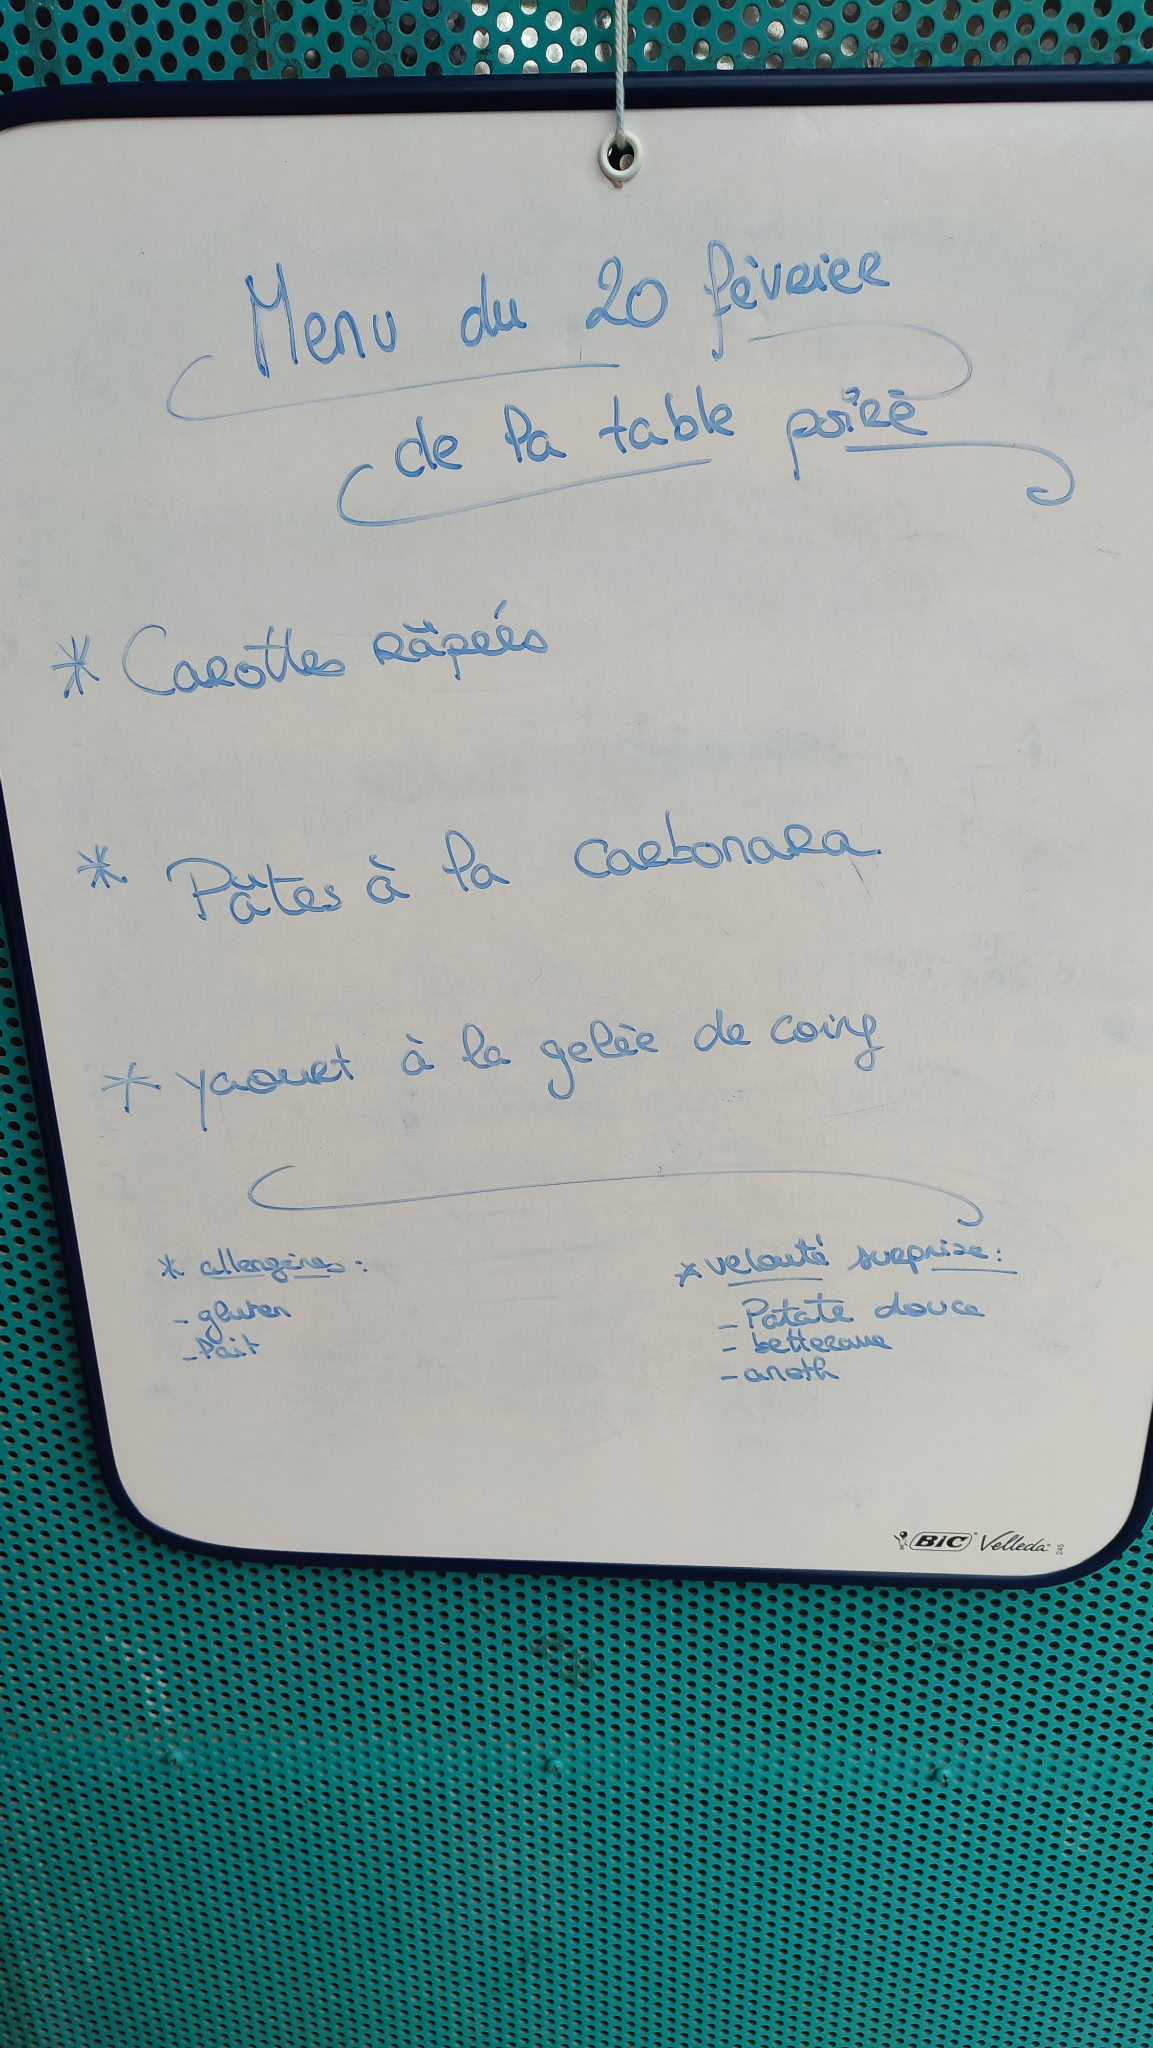 Menu du 20 février
de la table poiré
* Carottes râpées
* Pâtes à la carbonara
* yaourt à la gelée de coing
* allergènes :
- gluten
- lait
* velouté surprise :
- Patate douce
- betterave
- aneth
BIC Velleda
245